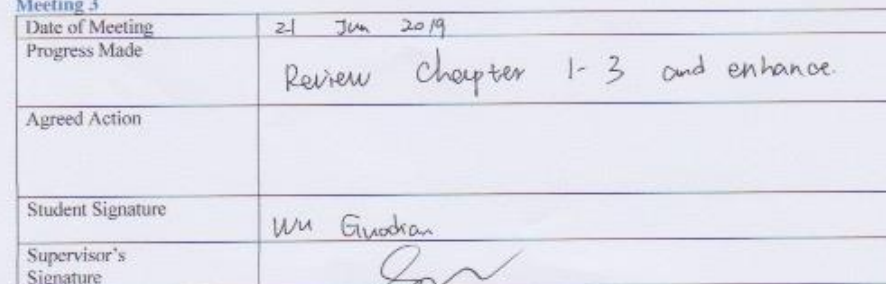 Meeting 3
Date of Meeting 21 Jun 2019
Progress Made
Review Chapter 1-3 and enhance.
Agreed Action
Student Signature
Wu Guodian
Supervisor's
Signature